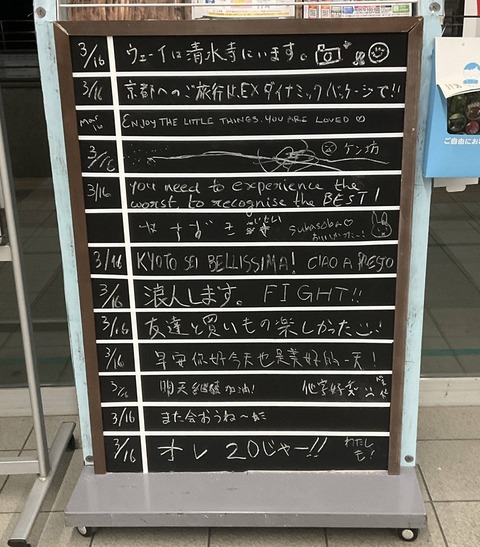 3/16 ウェーイは清水寺にいます。
3/16 京都へのご旅行は、EXダイナミックパッケージで!!
Mar 16 ENJOY THE LITTLE THINGS. YOU ARE LOVED ♡
3/16 ケン坊
3/16 you need to experience the
worst to recognise the BEST!
3/16 KYOTO SEI BELLISSIMA! CIAO A PRESTO
3/16 浪人します。 FIGHT!!
3/16 友達と買いもの楽しかった
3/16 早安你好今天也是美好的一天!
3/16 明天 加油! 化学好
3/16 また会おうね〜
3/16 オレ 20じゃー!! わたしも!
ご自由にお